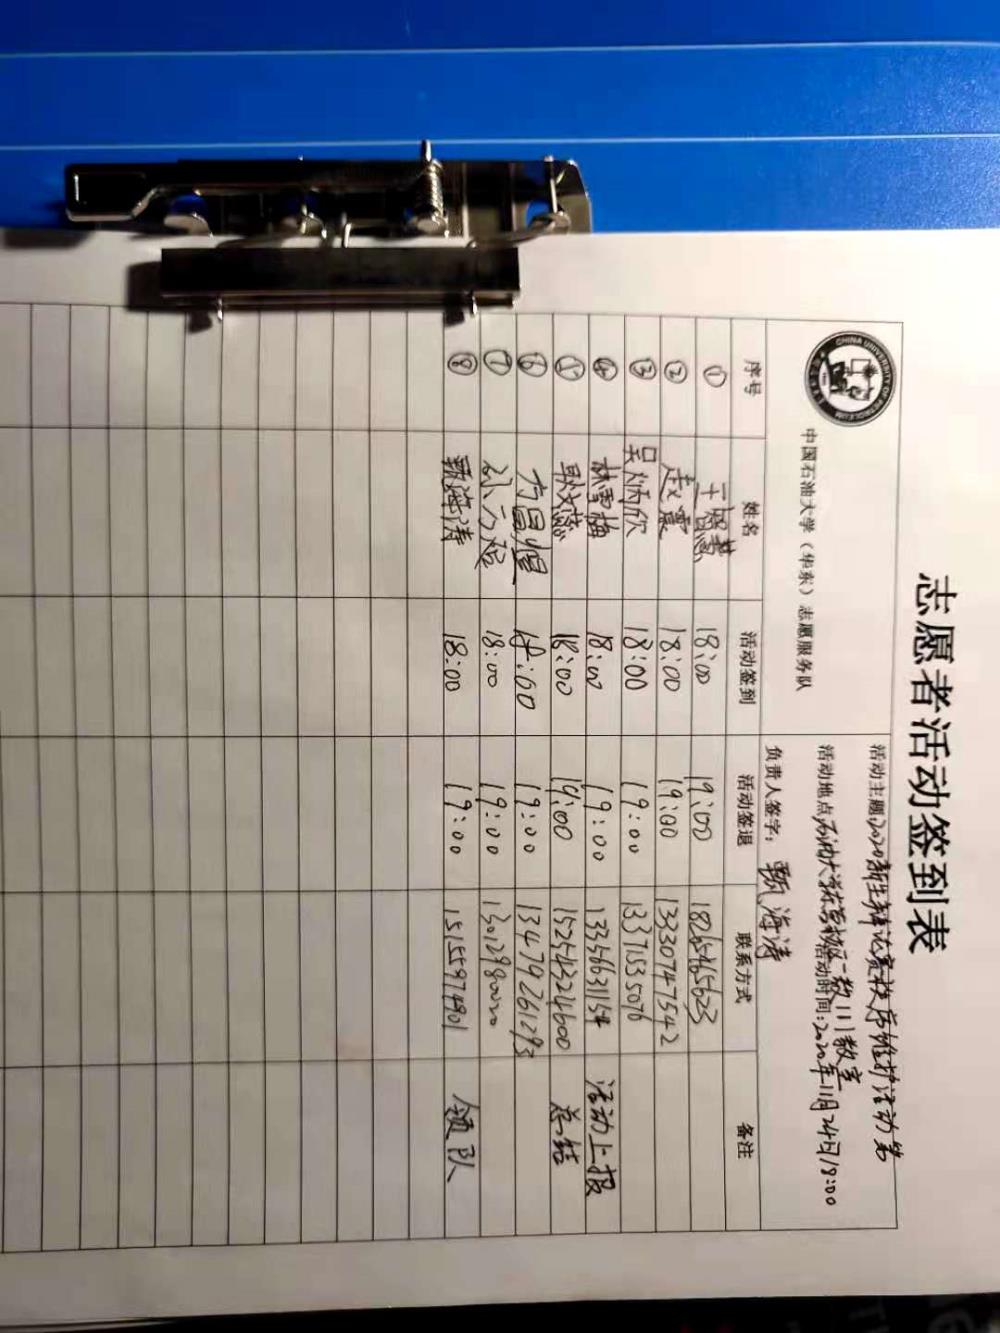 志愿者活动签到表
CHINA UNIVERSITY OF PETROLEUM
中国石油大学（华东）志愿服务队
活动主题：2020新生辩论赛秩序维护活动第
活动地点：石油大学东营校区一教111教室
活动时间：2020年11月24日18:00
负责人签字：甄海涛
序号 姓名 活动签到 活动签退 联系方式 备注
① 王慧 18:00 19:00 18265465623
② 赵震 18:00 19:00 13330747542
③ 吴炳欣 18:00 19:00 13371535076
④ 林雪梅 18:00 19:00 13356631154 活动上报
⑤ 耿文慧 18:00 19:00 15254324600 总结
⑥ 方昌恒 18:00 19:00 13479261293
⑦ 18:00 19:00 13012980020
⑧ 甄海涛 18:00 19:00 15155974901 领队